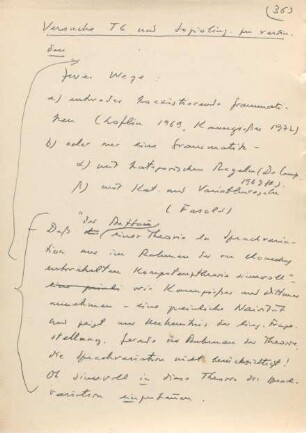 (36)
Versuche TG und Sozioling. zu verein.
Zwei Wege:
a) entweder koexistierende Grammati-
ken (Loflin 1969, Kanngießer 1972)
b) oder nur eine Grammatik -
α) mit kategorischen Regeln (De Camp
1969 ff.)
β) mit Kat. und Variablenregeln
(Fasold)
Daß "der Aufbau einer Theorie der Sprachvaria-
tion nur im Rahmen der von Chomsky
entwickelten Kompetenztheorie sinnvoll" -
wie Kanngießer und Dittmar
annehmen - eine Naivität
und zeugt von Unkenntnis der ling. Frage-
stellung. Gerade im Rahmen der Theorie,
die Sprachvariation nicht berücksichtigt!
Ob sinnvoll in diese Theorie die Sprach-
variation einzubauen.